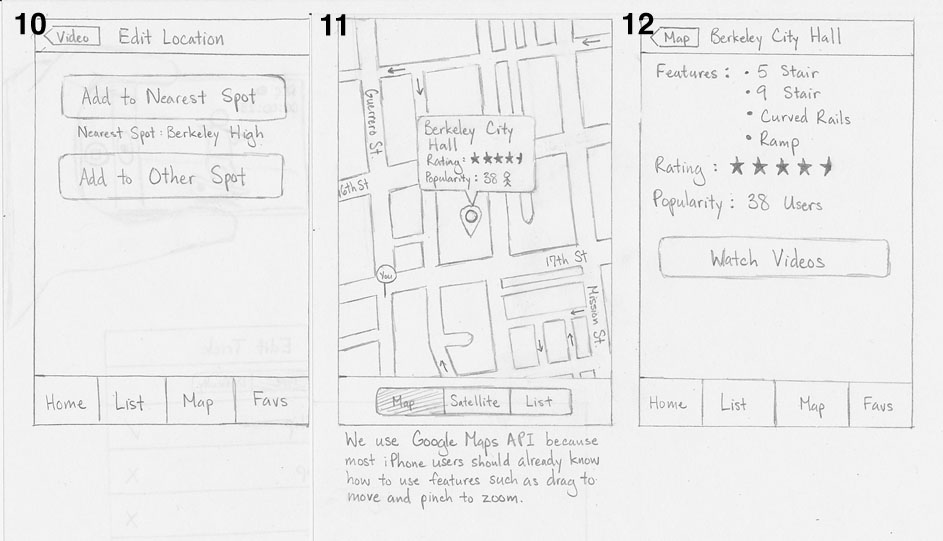 10
Video
Edit Location
Add to Nearest Spot
Nearest Spot: Berkeley High
Add to Other Spot
Home List Map Favs
11
Guerrero St.
Berkeley City
Hall
Rating: ★★★★
Popularity: 38
16th St
You
17th St
Mission St.
Map Satellite List
We use Google Maps API because
most iPhone users should already know
how to use features such as drag to
move and pinch to zoom.
12
Map
Berkeley City Hall
Features: • 5 Stair
• 9 Stair
• Curved Rails
• Ramp
Rating: ★★★★
Popularity: 38 Users
Watch Videos
Home List Map Favs